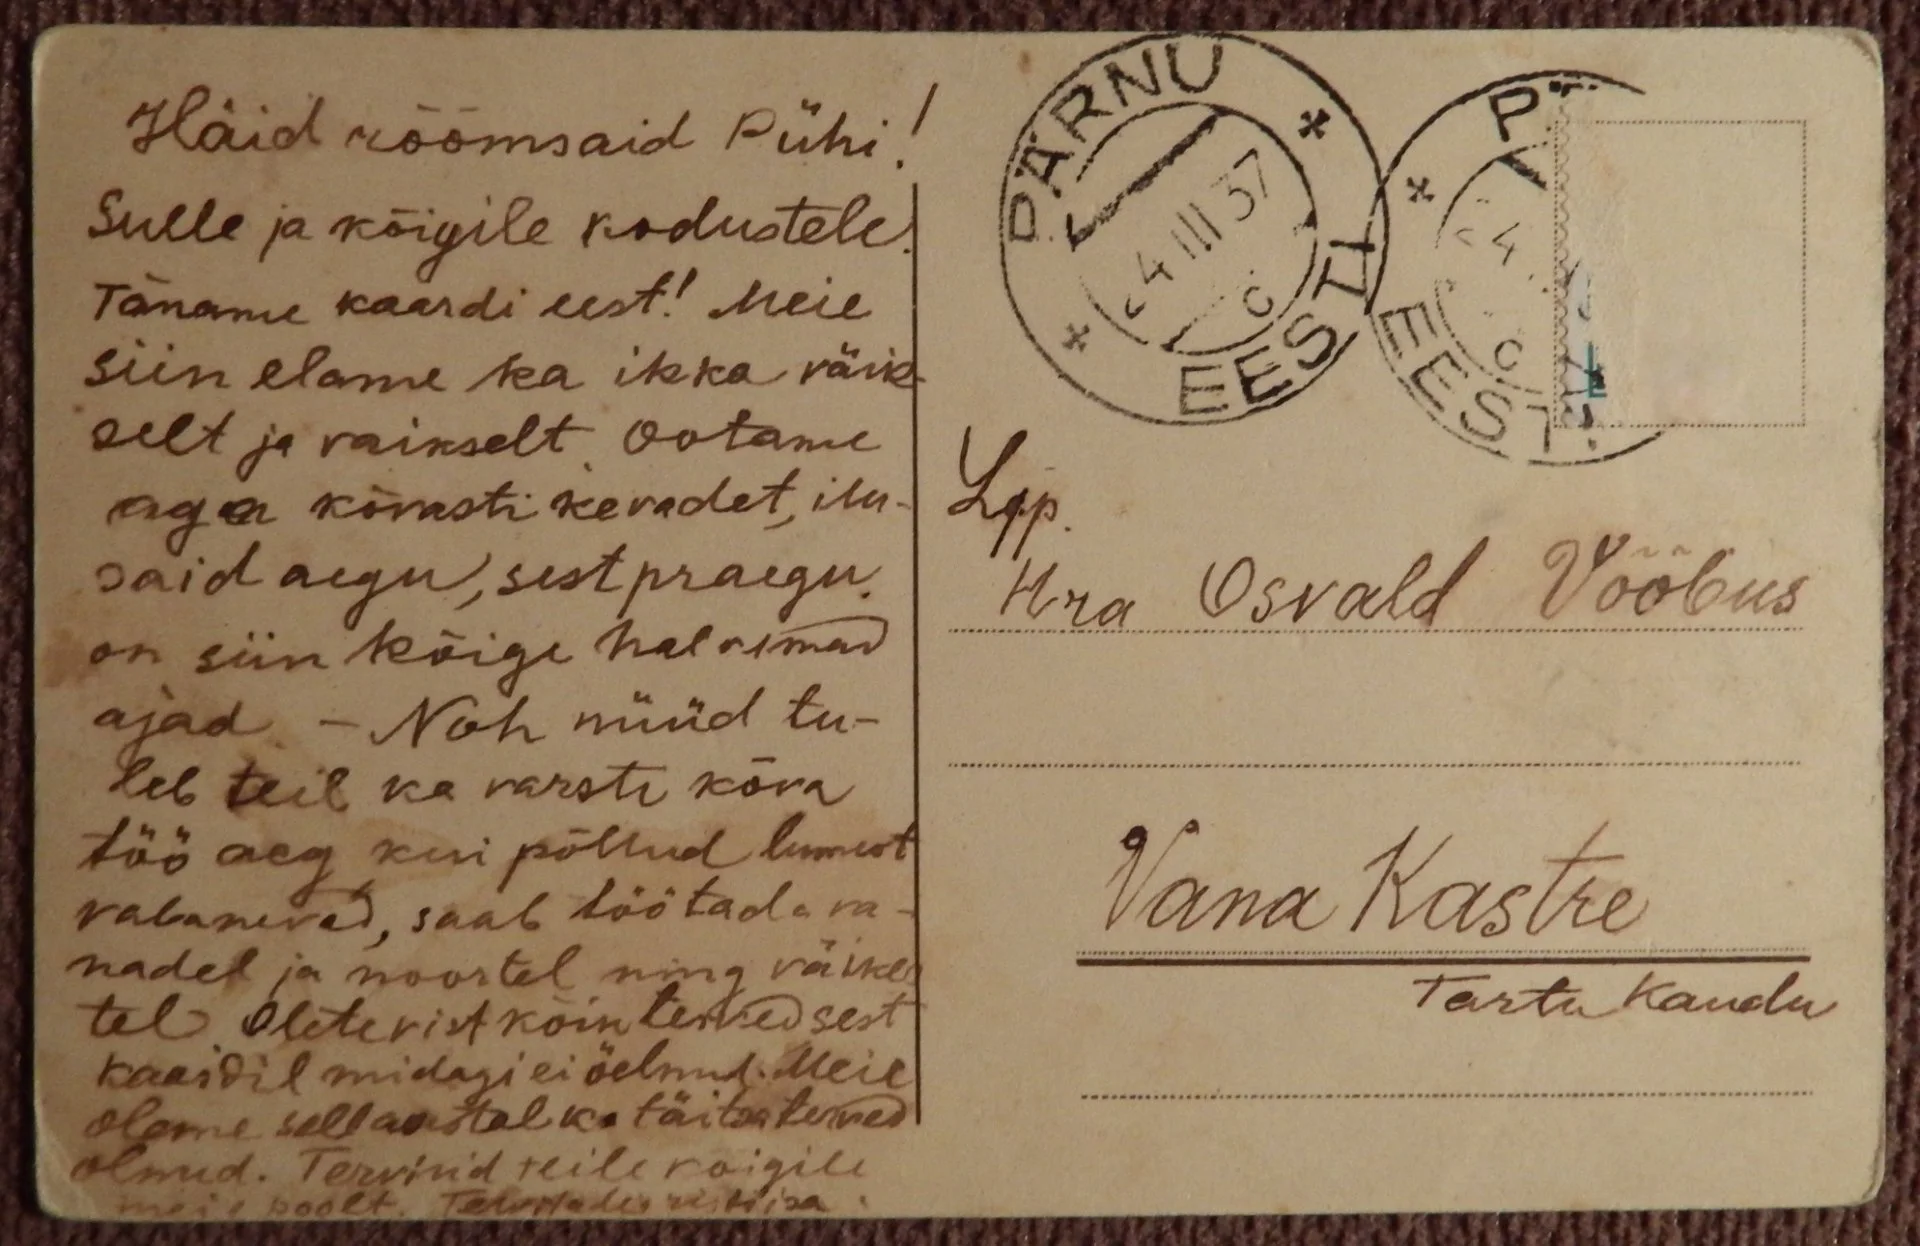 Häid rõõmsaid Pühi!
Sulle ja kõigile kodustele!
Täname kaardi eest! Meie
siin elame ka ikka väik-
selt ja vaikselt. Ootame
aga kõvasti kevadet, ilu-
said aegu, sest praegu
on siin kõige halvemad
ajad – Noh nüüd tu-
leb teil ka varsti kõva
töö aeg kui põllud lumest
vabanevad, saab töötada va-
nadel ja noortel ning väike-
tel Olete vist kõin terved sest
kaardil midagi ei öelnud. Meie
oleme sell aastal ka täitsa terved
olnud. Tervisid teile kõigile
meie poolt.
PÄRNU
4 III 37
C
EESTI
P
4
C
EEST
Lgp.
Hra Osvald Vööbus
Vana Kastre
Tartu Kaudu